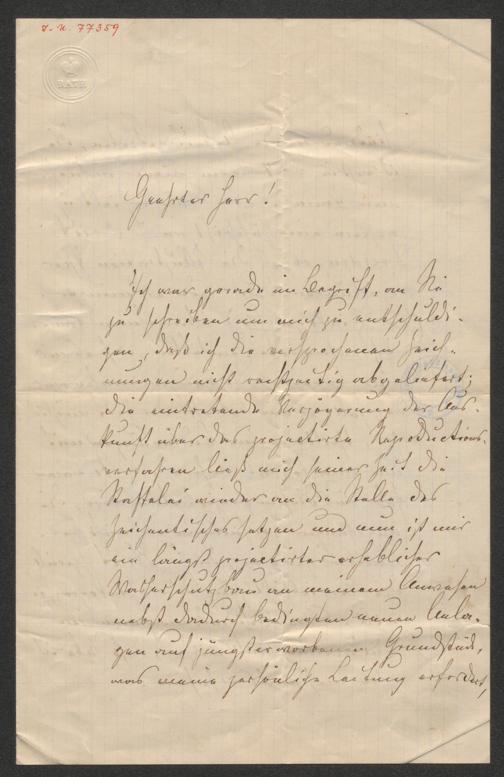 I. N. 77359
BATH
Geehrter Herr!
Ich war gerade im Begriff, an Sie
zu schreiben um mich zu entschuldi-
gen, daß ich die versprochenen Zeich-
nungen nicht rechtzeitig abgeliefert;
die eintretende Verzögerung der Aus-
kunft über das projectirte Reproductions-
verfahren ließ mich seiner Zeit die
Staffelei wieder an die Stelle des
Zeichentisches setzen und nun ist mir
ein längst projectirter erheblicher
Wasserschutzbau an meinem Anwesen
nebst dadurch bedingten neuen Anla-
gen auf jüngst erworbenem Grundstück,
was meine persönliche Leitung erfordert,